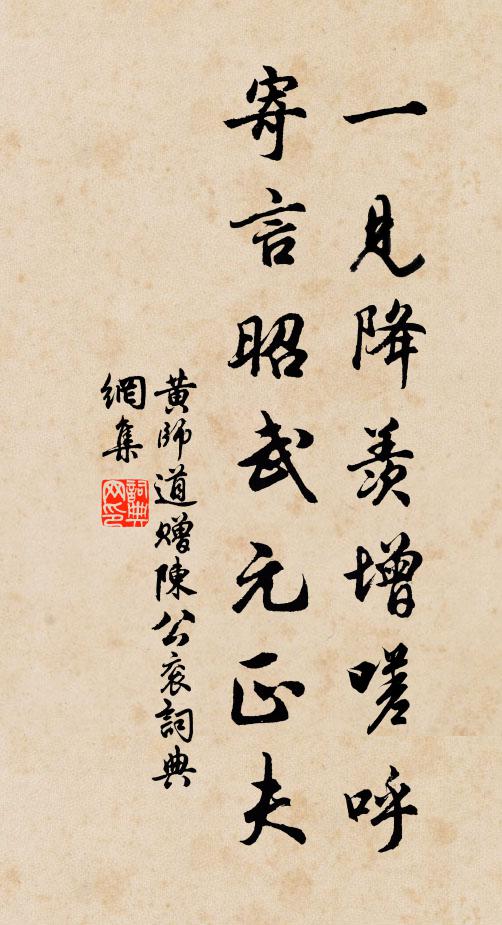 一見降羨增嗟呼
寄言昭武元正夫
黃師道贈陳公袞詞典
網集
詞典
網印